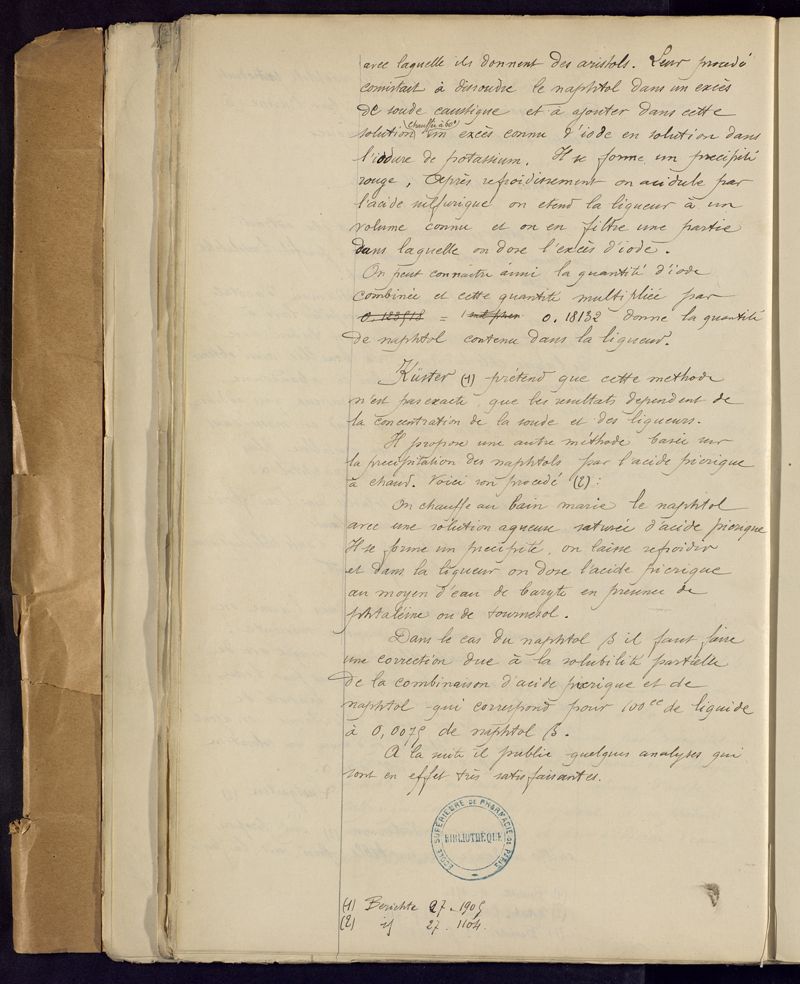 avec laquelle ils donnent des aristols. Leur procédé
consistait à dissoudre le naphtol dans un excès
de soude caustique et à ajouter dans cette
solution chauffée à 60° un excès connu d'iode en solution dans
l'iodure de potassium. Il se forme un precipité
rouge. Après refroidissement on acidule par
l'acide sulfurique on etend la liqueur à un
volume connu et on en filtre une partie
dans laquelle on dose l'excès d'iode.
On peut connaitre ainsi la quantité d'iode
combinée et cette quantité multipliée par
= 0.18132 donne la quantité
de naphtol contenu dans la liqueur.
Küster (1) prétend que cette methode
n'est pas exacte que les resultats dependent de
la concentration de la soude et des liqueurs.
Il propose une autre méthode basée sur
la precipitation des naphtols par l'acide picrique
à chaud. Voici son procédé (2) :
On chauffe au bain marie le naphtol
avec une solution aqueuse saturée d'acide picrique
Il se forme un precipité. on laisse refroidir
et dans la liqueur on dose l'acide picrique
au moyen d'eau de baryte en presence de
phtaléine ou de tournesol.
Dans le cas du naphtol β il faut faire
une correction due à la solubilité partielle
de la combinaison d'acide picrique et de
naphtol qui correspond pour 100cc de liquide
à 0,0075 de naphtol β.
A la suite il publie quelques analyses qui
sont en effet très satisfaisantes.
ECOLE SUPÉRIEURE DE PHARMACIE DE PARIS
BIBLIOTHÈQUE
(1) Berichte 27 - 1905
(2) id 27 - 1104.